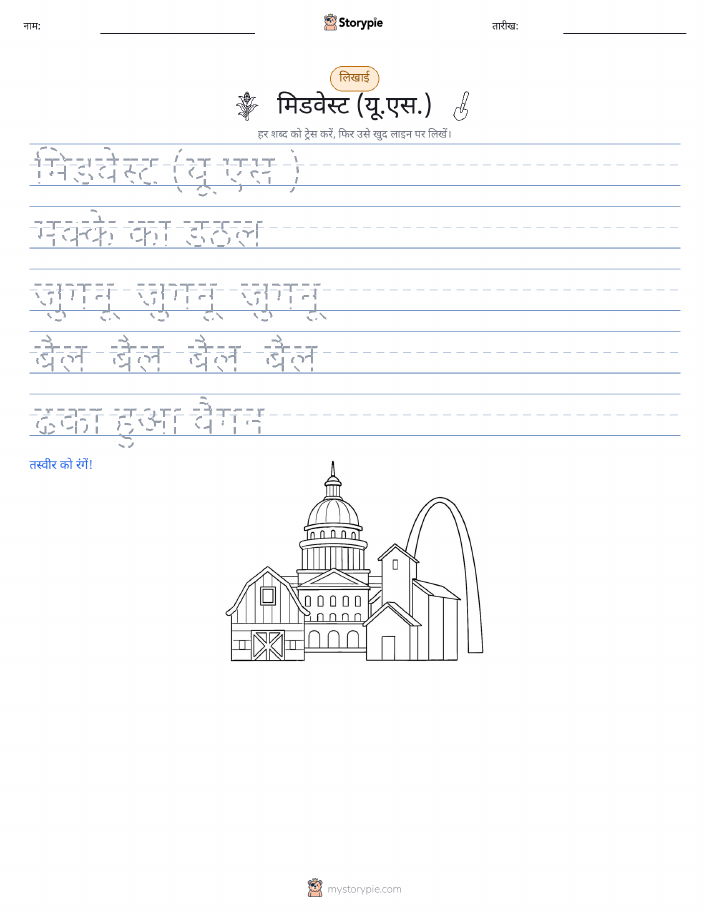 नाम:
Storypie
तारीख:
लिखाई
मिडवेस्ट (यू.एस.)
हर शब्द को ट्रेस करें, फिर उसे खुद लाइन पर लिखें।
मिडवेस्ट (यू एस )
मक्के का डठल
जुगनू जुगनू जुगनू
बैल बैल बैल बैल
ढका हुआ वैगन
तस्वीर को रंगें!
mystorypie.com